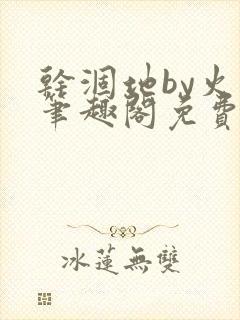 乾涸地by火
筆趣閣免費
冰蓮無雙